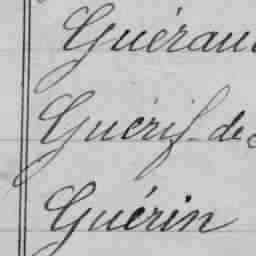 Guérau
Guérif-de
Guérin